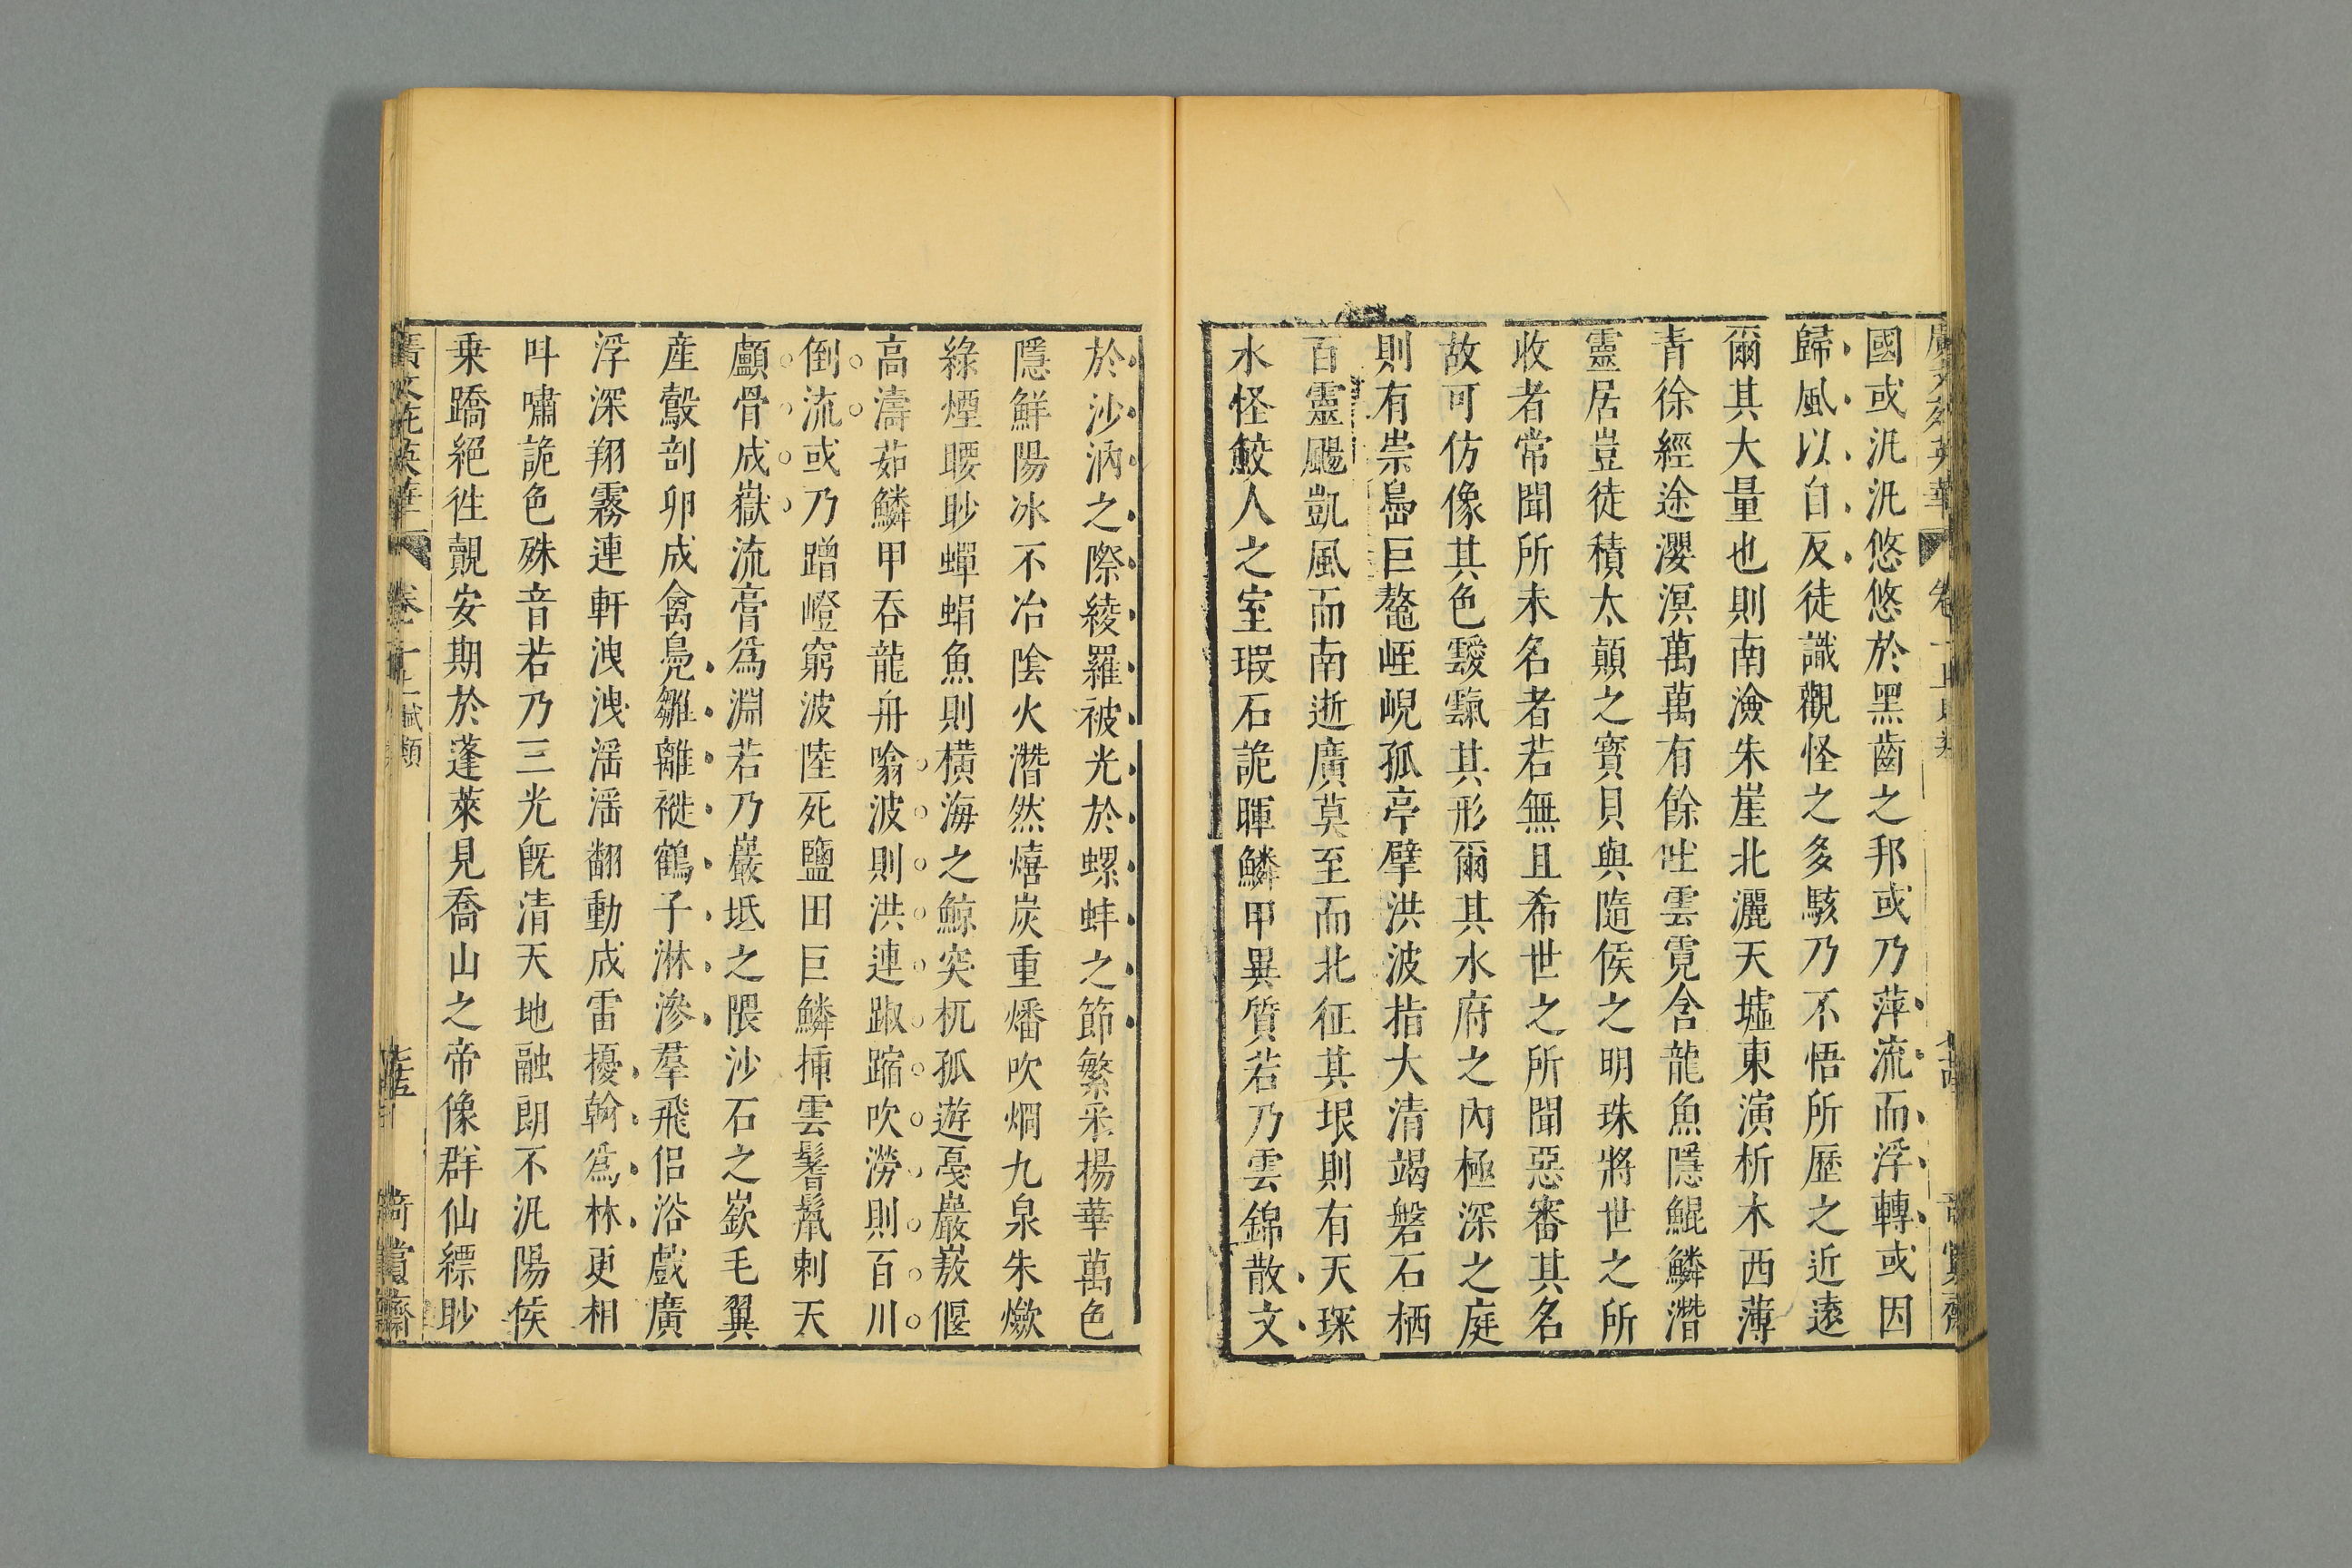 國或汎汎悠悠於黑齒之邦或乃萍流而浮轉或因
歸風以自反徒識觀怪之多駭乃不悟所歷之近遠
爾其大量也則南澰朱崖北灑天墟東演析木西薄
青徐經途瀴溟萬萬有餘吐雲霓含龍魚隱鯤鱗潛
靈居豈徒積太顛之寶貝與隨侯之明珠將世之所
收者常聞所未名者若無且希世之所聞惡審其名
故可仿像其色靉霼其形爾其水府之內極深之庭
則有崇島巨鼇峌峴孤亭擘洪波指大清竭磐石栖
百靈颺凱風而南逝廣莫至而北征其垠則有天琛
水怪鮫人之室瑕石詭暉鱗甲異質若乃雲錦散文
於沙汭之際綾羅被光於螺蚌之節繁采揚華萬色
隱鮮陽冰不冶陰火潛然熺炭重燔吹烱九泉朱燉
綠煙䁏眇蟬蜎魚則橫海之鯨突杌孤遊戞巖嶅偃
高濤茹鱗甲吞龍舟噏波則洪連踧蹜吹澇則百川
倒流或乃蹭蹬窮波陸死鹽田巨鱗揷雲鬐鬣剌天
顱骨成嶽流膏爲淵若乃巖坻之隈沙石之嶔毛翼
産鷇剖卵成禽鳧雛離褷鶴子淋滲羣飛侶浴戲廣
浮深翔霧連軒洩洩滛滛翻動成雷擾翰爲林更相
呌嘯詭色殊音若乃三光旣清天地融朗不汎陽侯
乗蹻絕徃覿安期於蓬萊見喬山之帝像群仙縹眇
廣文苑英華 卷十 賦類